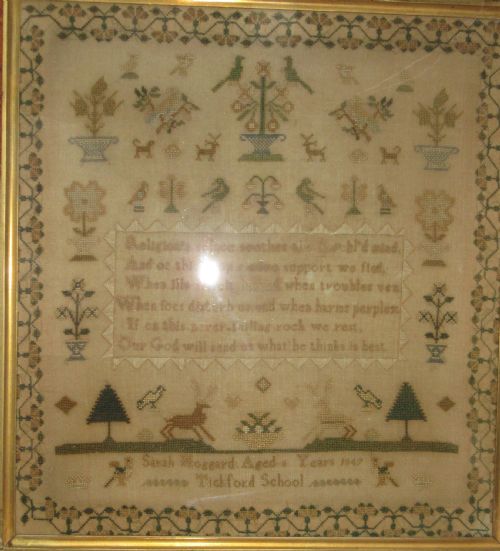 Religion's soothes the mind
And on this support we find
When life when troubles vex
When foes disturb us and when harms perplex
If on this never-failing rock we rest
Our God will send us what he thinks is best
Sarah Hoggard Aged Years 1847
Tickford School